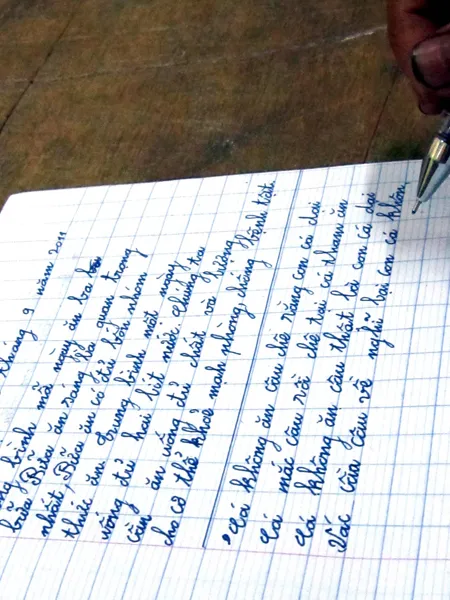 tháng 9 năm 2011
bình mỗi ngày ăn ba
bữa. Bữa ăn sáng là quan trọng
nhất, Bữa ăn có đủ bốn nhóm
thức ăn. Trung bình một ngày
uống đủ hai lít nước. chúng ta
cần ăn uống đủ chất và lượng
cho cơ thể khoẻ mạnh phòng chống bệnh tật.
Cá không ăn câu chê rằng con cá dại
Cá mắc câu rồi chê tại cá tham ăn
Cá không ăn câu thật là con cá dại
Vác cần câu về nghĩ lại con cá khôn